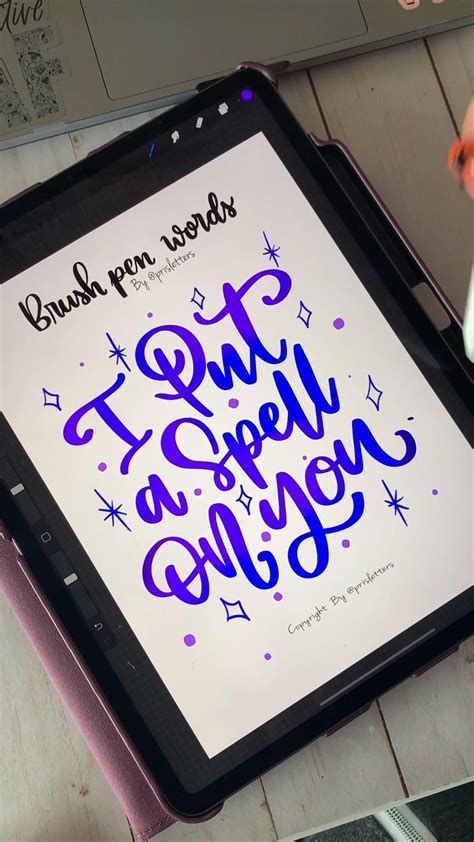 ctive
Brush pen words
By @prisletters
I Put
a Spell
On You
Copyright By @prisletters